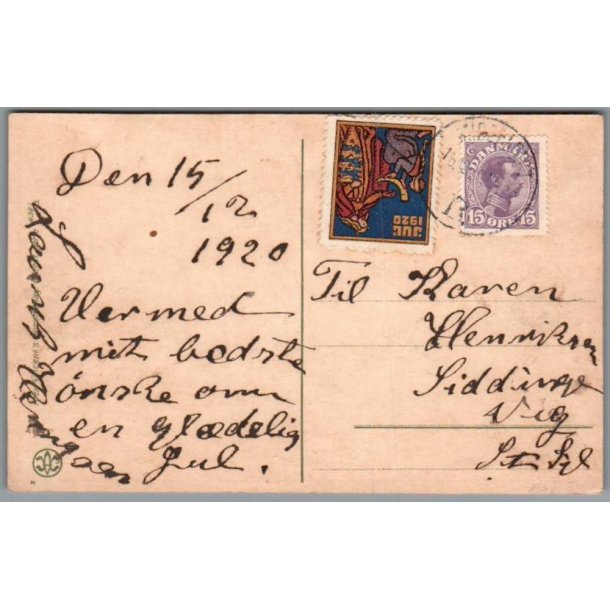 Den 15/12
1920
Vær med
mit bedste
önske om
en glædelig
Jul.
JUL
1920
DANMARK
15 ØRE 15
Til Karen
Henriksen
Siddinge
Vig
St Sj